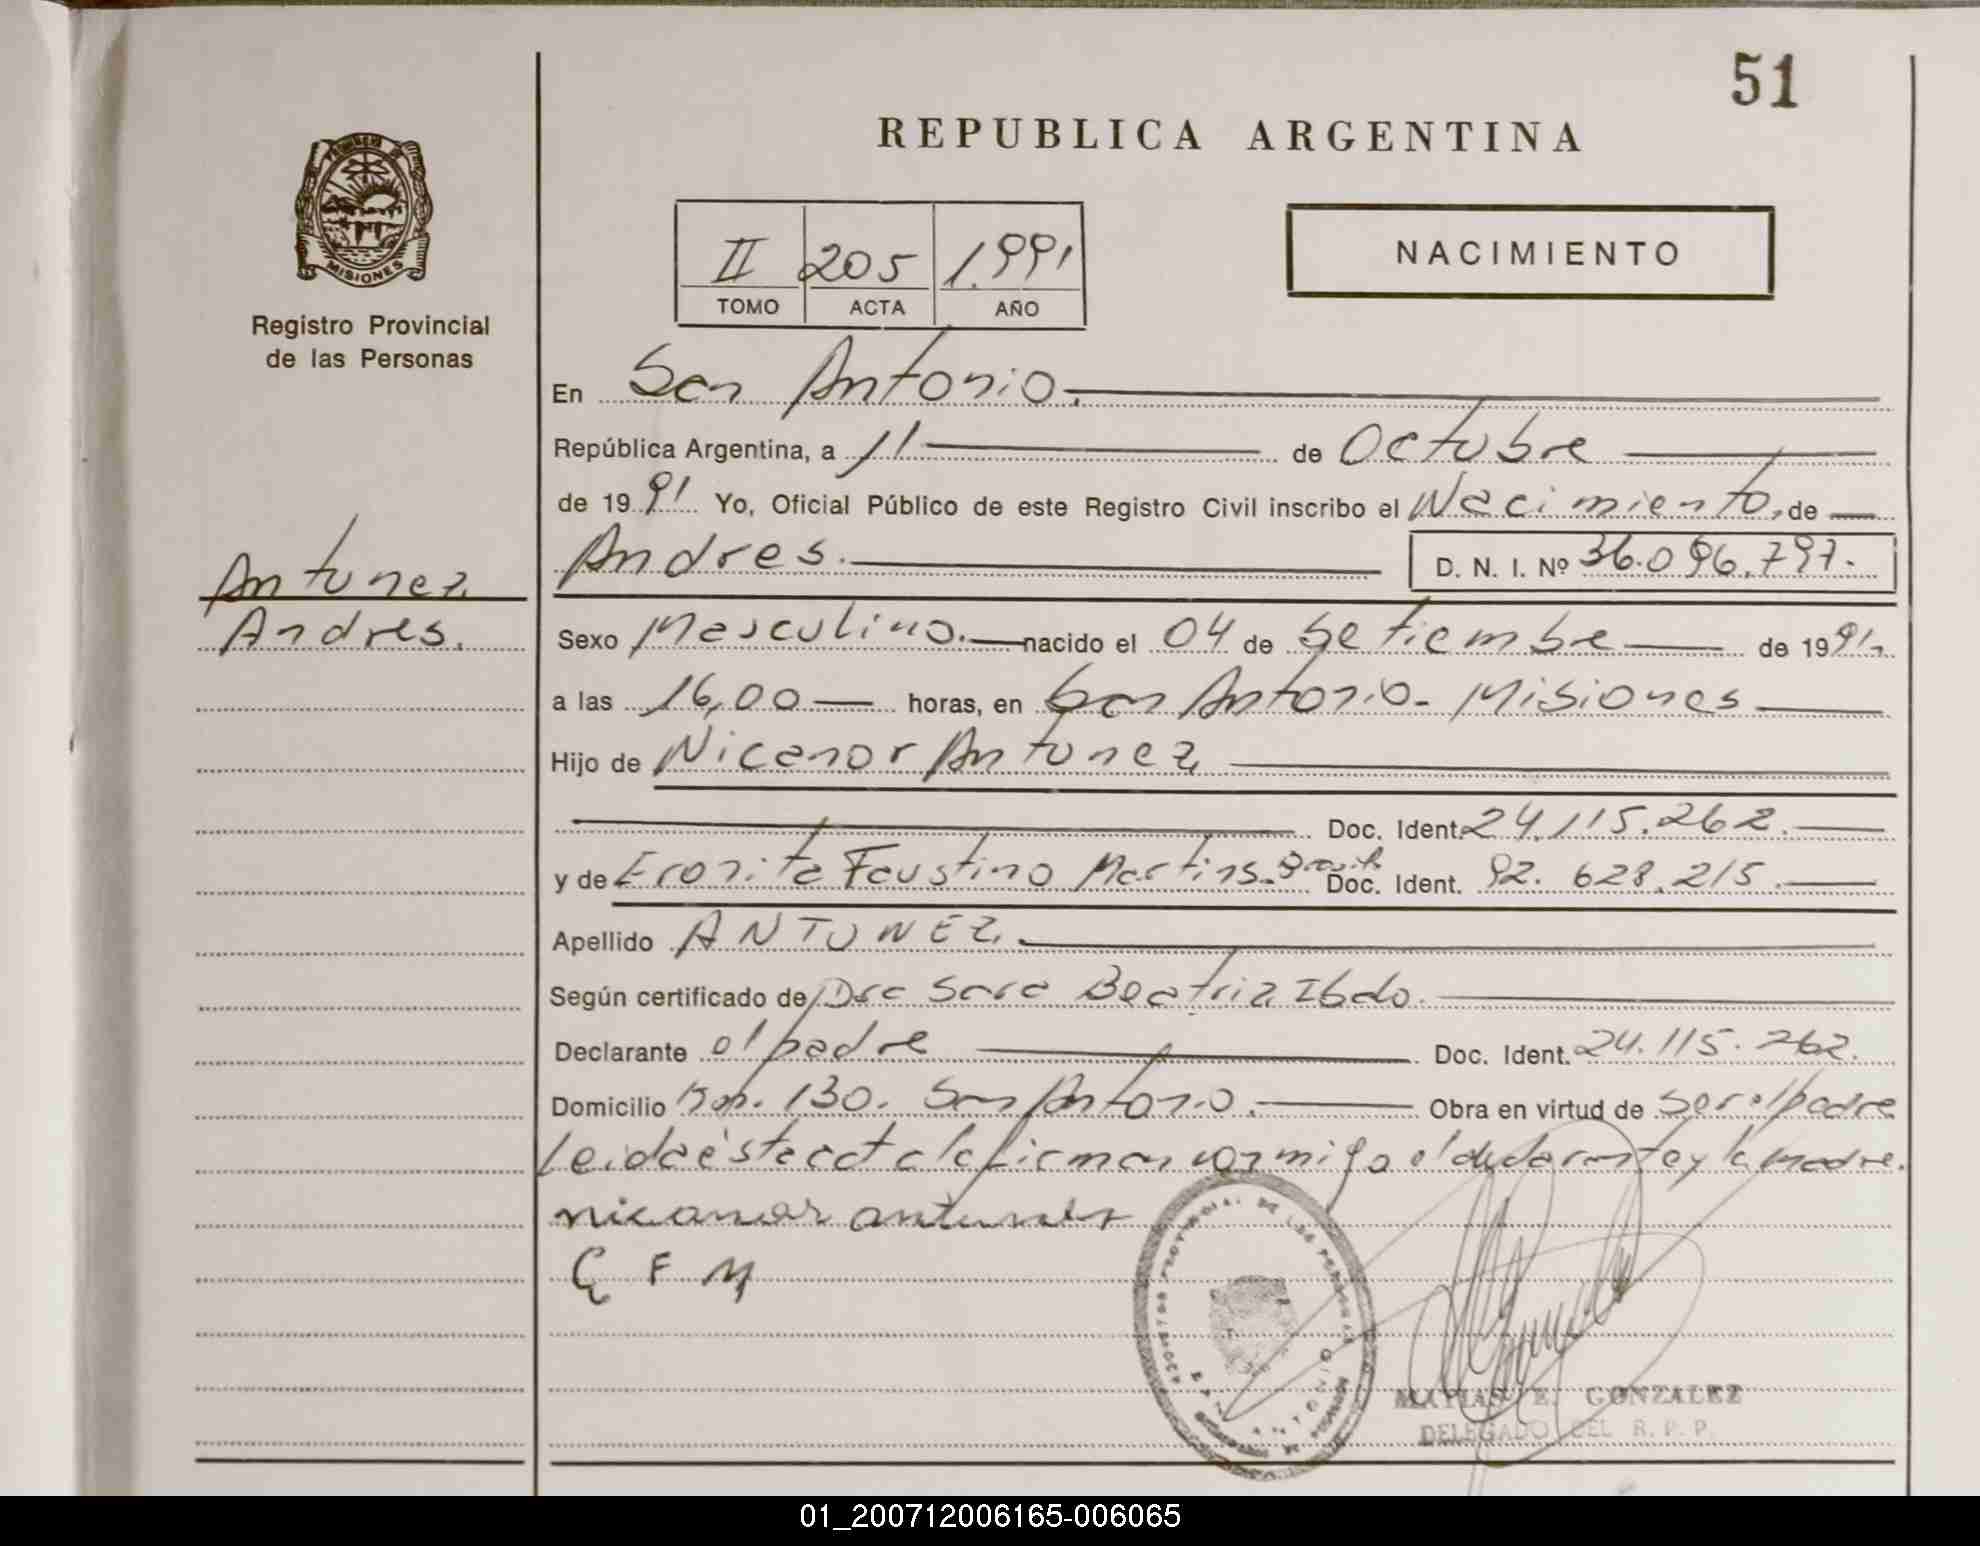 51
REPUBLICA ARGENTINA
PROVINCIA DE
MISIONES
Registro Provincial
de las Personas
II 205 1.991
TOMO ACTA AÑO
NACIMIENTO
En San Antonio.
República Argentina, a 11 de Octubre
de 1991 Yo, Oficial Público de este Registro Civil inscribo el Nacimiento, de
Andres. D. N. I. Nº 36.096.797.
Antunez
Andres.
Sexo Masculino. nacido el 04 de Setiembre de 1991
a las 16,00 horas, en San Antonio - Misiones
Hijo de Nicanor Antunez
Doc. Ident. 24.115.262.
y de Eronita Faustino Martins - Doc. Ident. 92.628.215.
Apellido ANTUNEZ.
Según certificado de Dra Sara Beatriz
Declarante el padre Doc. Ident. 24.115.262.
Domicilio 130. San Antonio. Obra en virtud de ser el padre
Leida ésta acta la firman conmigo el declarante y la madre.
nicanor antunes
E F M
SAN ANTONIO
MATIAS E. GONZALEZ
DELEGADO DEL R. P. P.
01_200712006165-006065